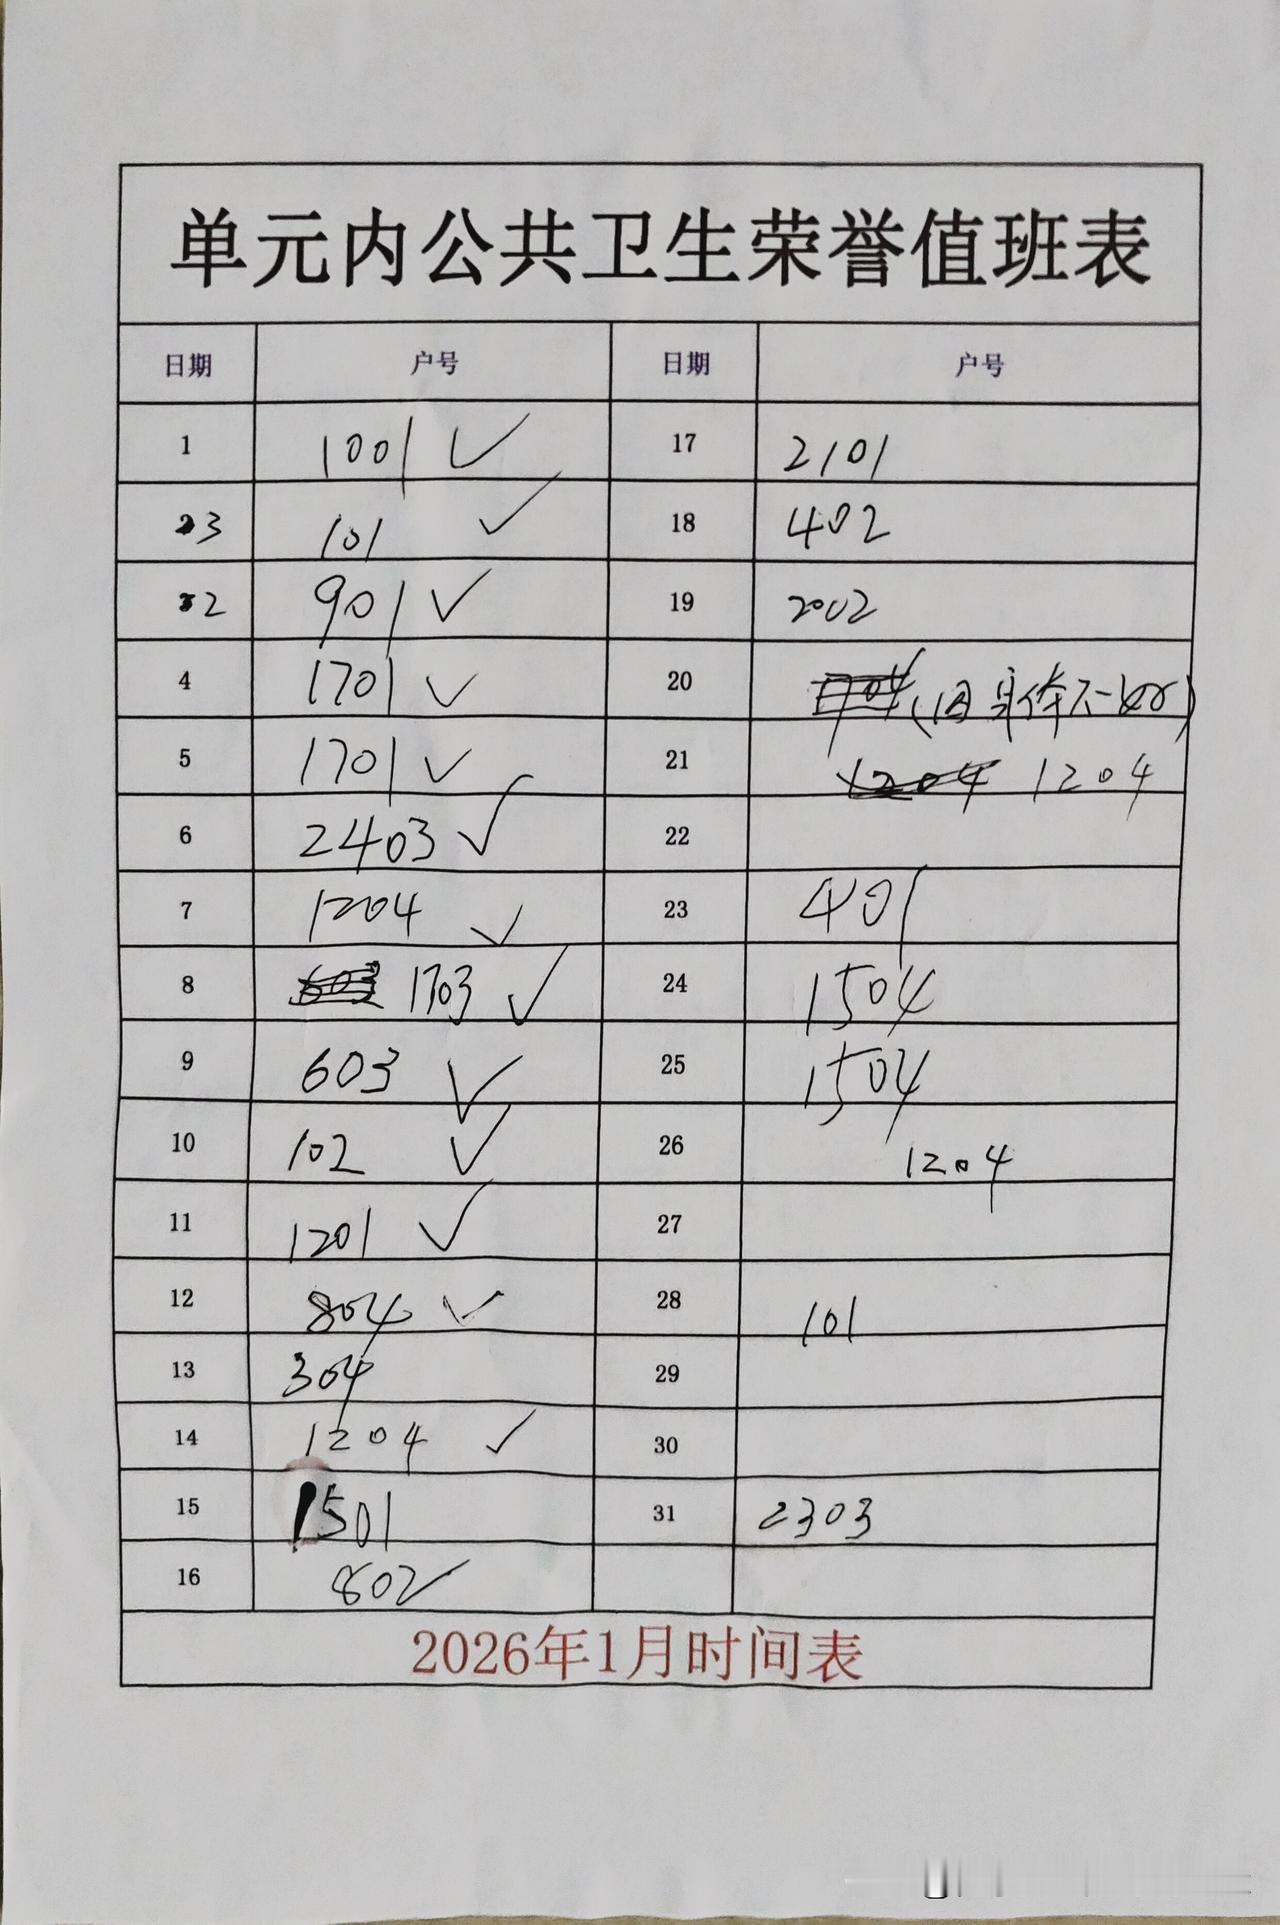 单元内公共卫生荣誉值班表
日期 户号 日期 户号
1 1001 ✓ 17 2101
3 101 ✓ 18 402
2 901 ✓ 19 2002
4 1701 ✓ 20 (因身体不好)
5 1701 ✓ 21 1204 1204
6 2403 ✓ 22
7 1204 ✓ 23 401
8 603 1703 ✓ 24 1504
9 603 ✓ 25 1504
10 102 ✓ 26 1204
11 1201 ✓ 27
12 804 ✓ 28 101
13 304 29
14 1204 ✓ 30
15 1501 31 2303
16 802 ✓
2026年1月时间表